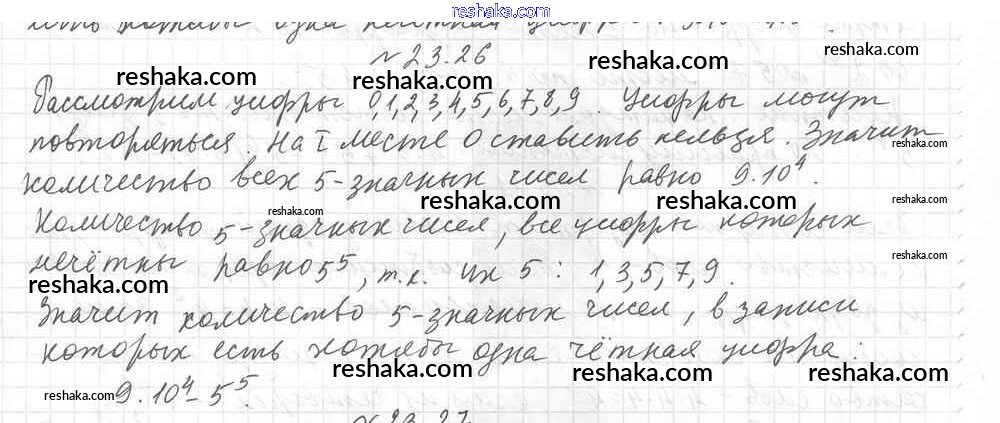 reshaka.com
хотябы одна нечётная
№23.26
Рассмотрим цифры 0,1,2,3,4,5,6,7,8,9. Цифры могут
повторяться. На I месте 0 ставить нельзя. Значит
количество всех 5-значных чисел равно 9.10⁴.
Количество 5-значных чисел, все цифры которых
нечётны равно 5⁵, т.к. их 5: 1,3,5,7,9.
Значит количество 5-значных чисел, в записи
которых есть хотябы одна чётная цифра:
9.10⁴-5⁵.
№23.27
reshaka.com
reshaka.com
reshaka.com
reshaka.com
reshaka.com
reshaka.com
reshaka.com
reshaka.com
reshaka.com
reshaka.com
reshaka.com
reshaka.com
reshaka.com
reshaka.com